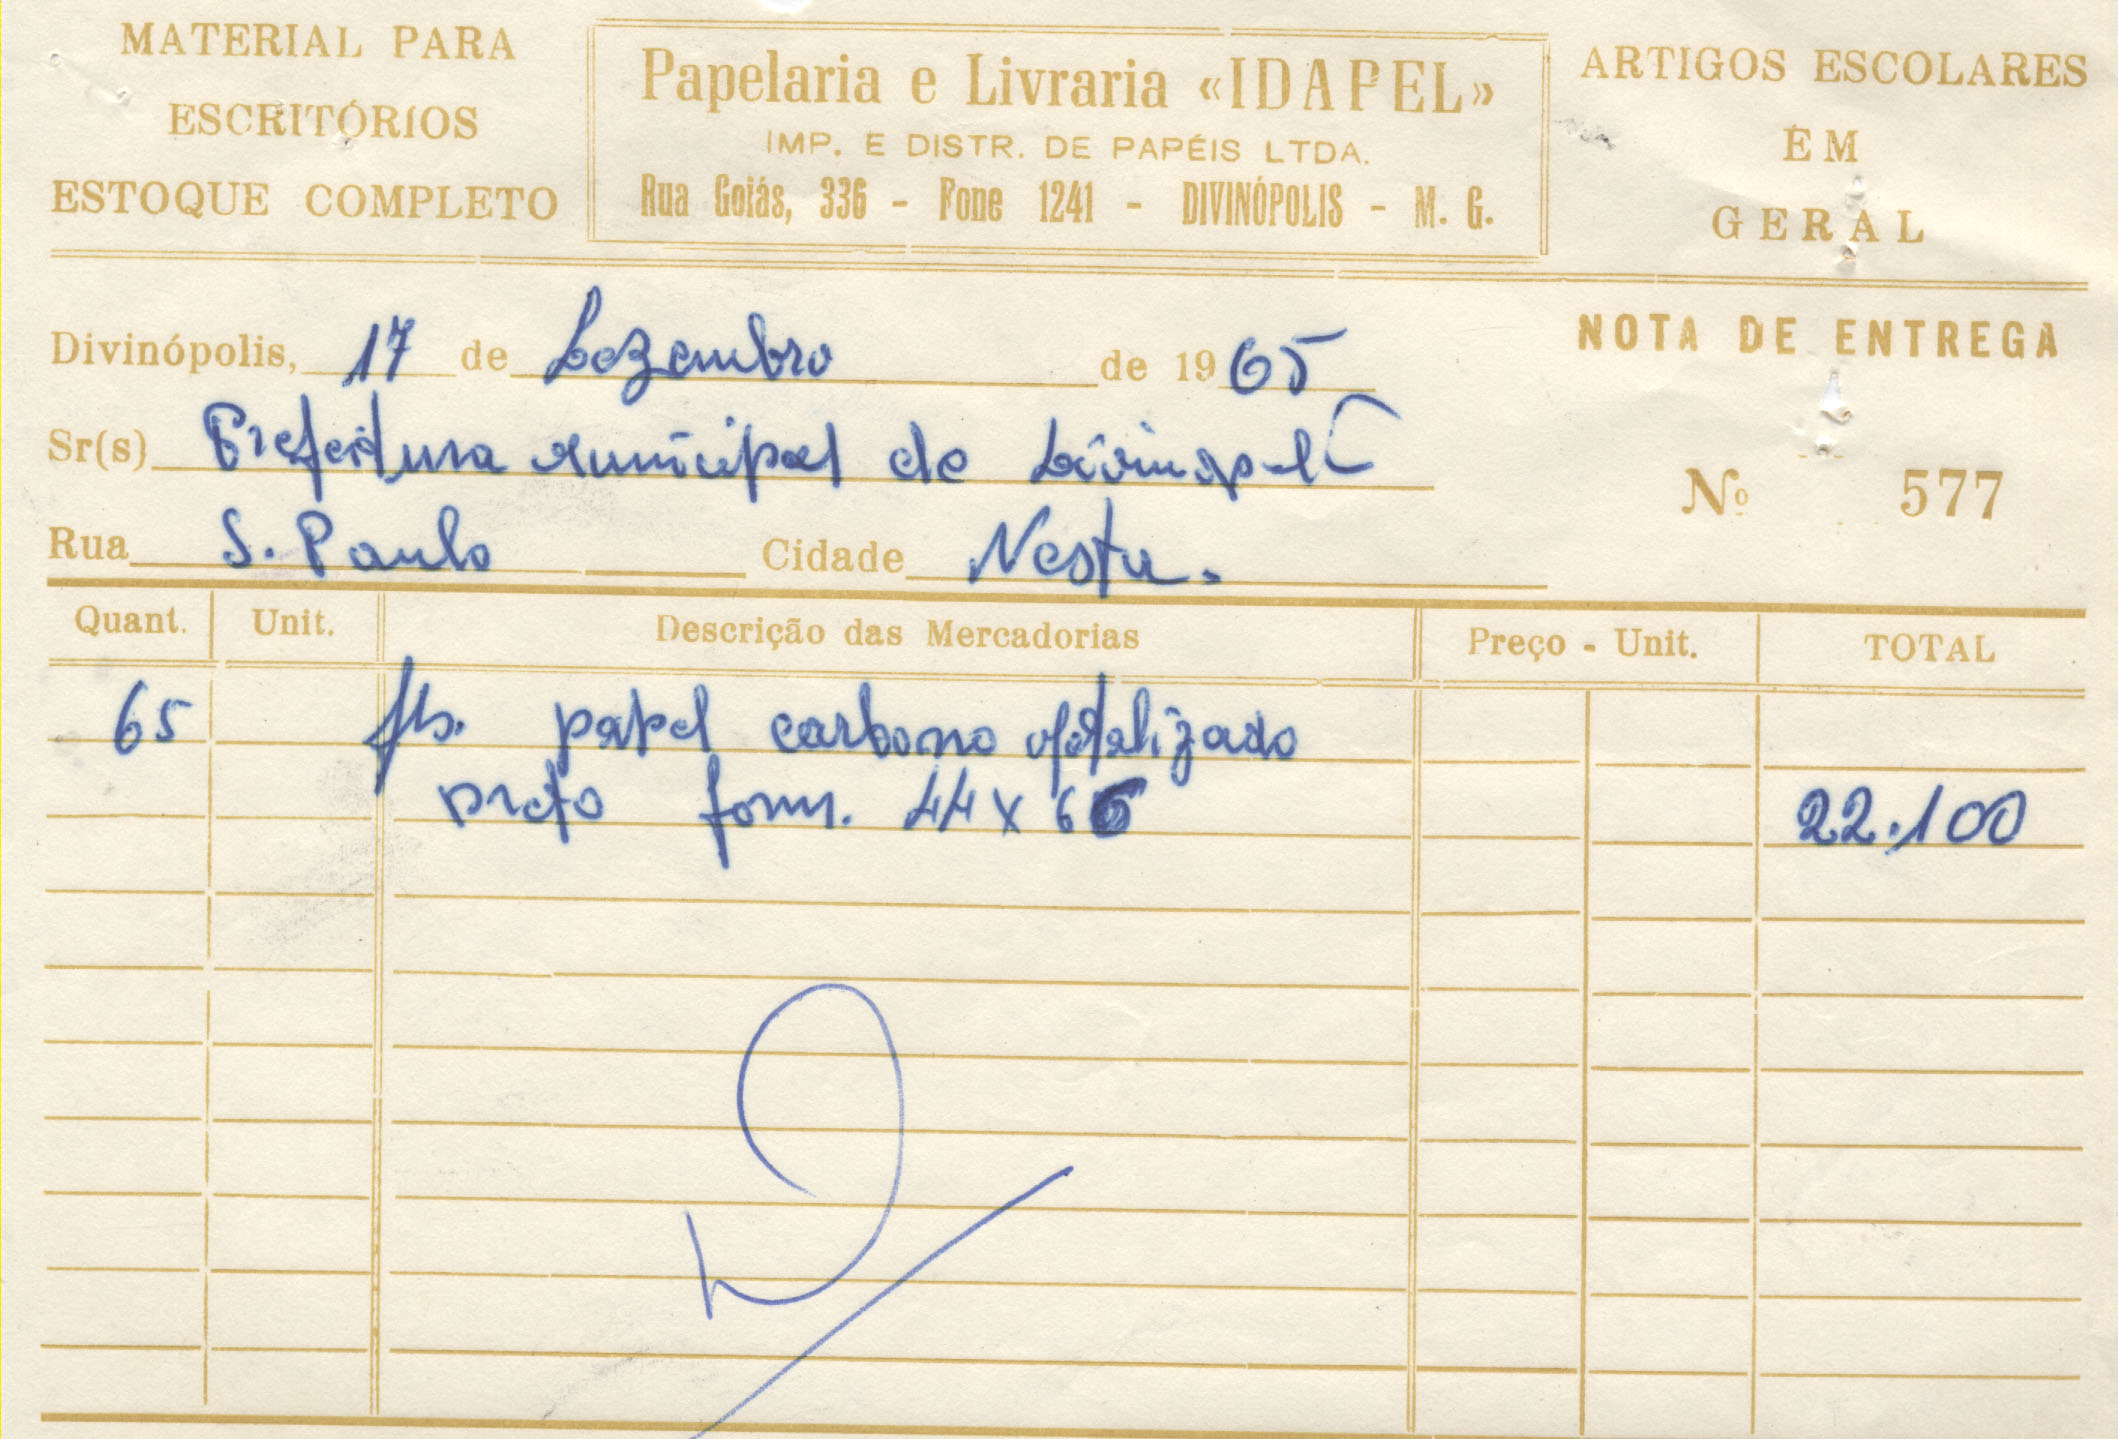 MATERIAL PARA
ESCRITÓRIOS
ESTOQUE COMPLETO
Papelaria e Livraria «IDAPEL»
IMP. E DISTR. DE PAPÉIS LTDA.
Rua Goiás, 336 - Fone 1241 - DIVINÓPOLIS - M. G.
ARTIGOS ESCOLARES
EM
GERAL
Divinópolis, 17 de Dezembro de 1965
NOTA DE ENTREGA
Sr(s) Prefeitura Municipal de
Nº 577
Rua S. Paulo Cidade Nesta.
Quant. Unit. Descrição das Mercadorias Preço - Unit. TOTAL
65 fls. papel carbono
preto form. 44 x 66 22.100